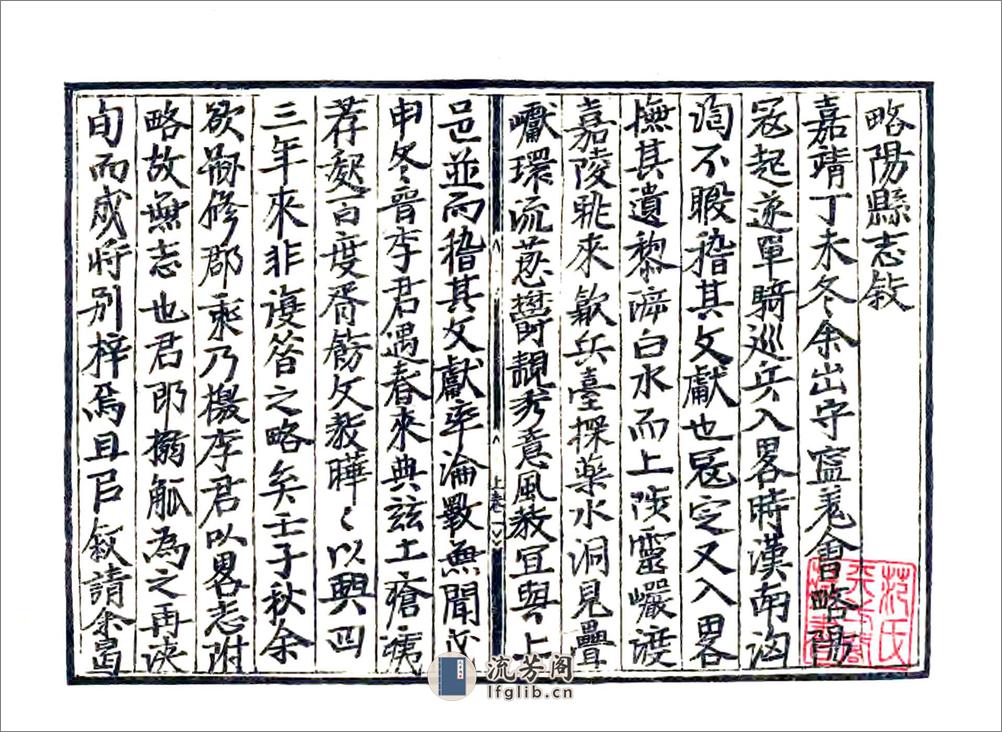 略陽縣志敘
嘉靖丁未冬余出守寧羌會略陽
冦起遂單騎巡兵入畧時漢南洶
洶不暇稽其文獻也冦定又入畧
撫其遺黎濟白水而上陟靈巖渡
嘉陵眺來歙兵臺探藥水洞見疊
巘環流蔥鬱靚秀意風教宜與上
邑並而稽其文獻率淪斁無聞戊
申冬晉李君遇春來典茲土瘡痍
荐起百度胥飭文教曄〻以興四
三年來非復昝之略矣壬子秋余
欲嗣修郡乘乃檄李君以畧志附
略故無志也君即搦觚為之再浹
旬而成將別梓焉且以敘請余曷
上卷一
范氏
天一閣
藏書
流芳阁
lfglib.cn